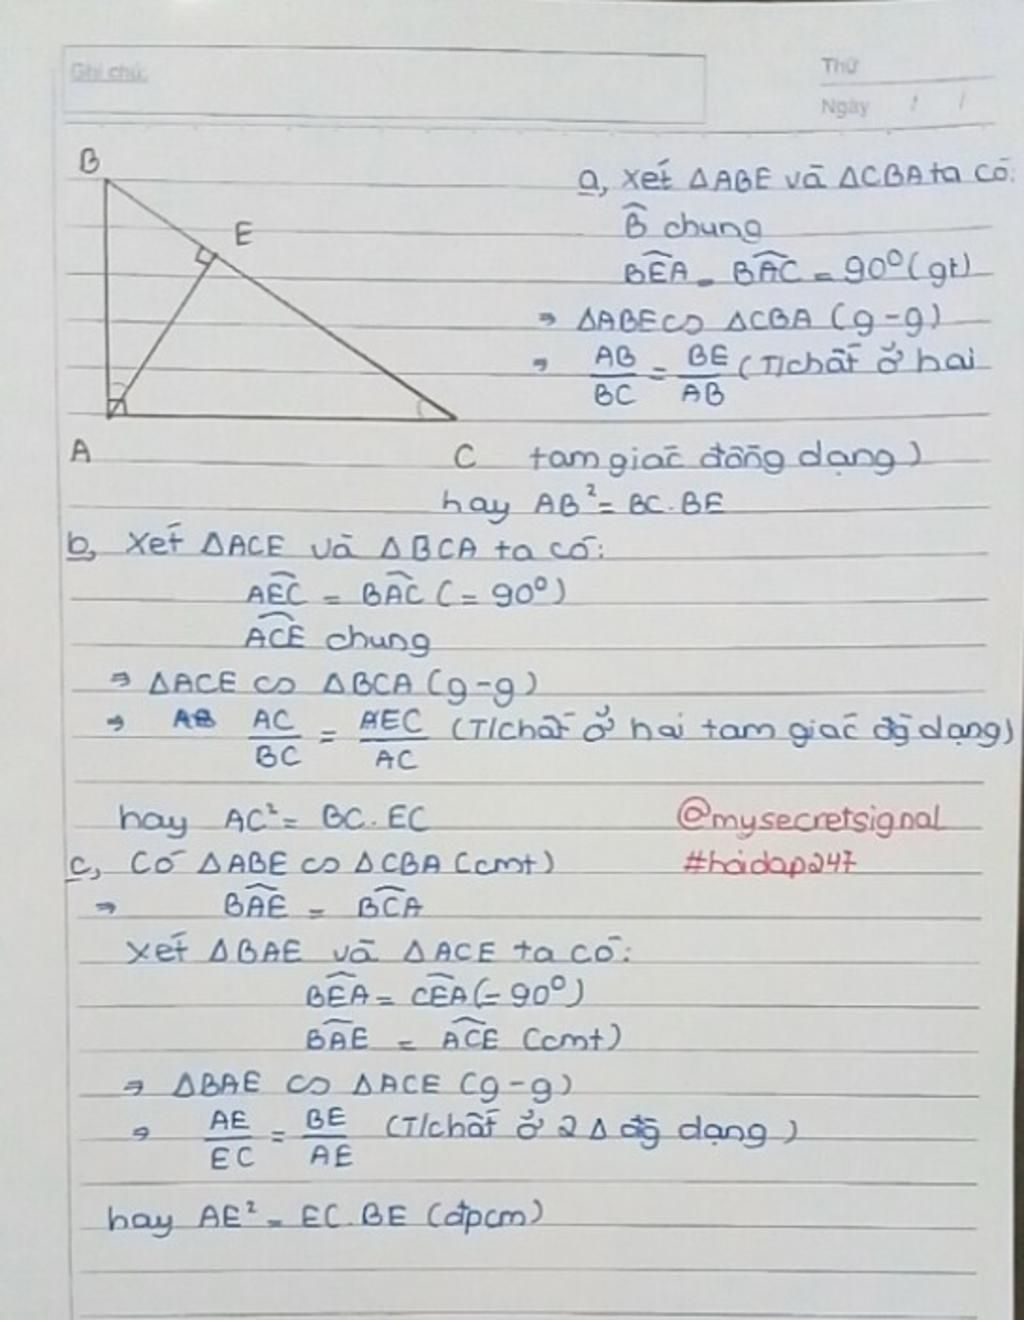 Ghi chú:
Thứ
Ngày / /
B
E
A
C
a, Xét ΔABE và ΔCBA ta có:
B̂ chung
BÊA = BÂC = 90° (gt)
⇒ ΔABE ∽ ΔCBA (g-g)
⇒ AB/BC = BE/AB (T/chất ở hai
tam giác đồng dạng)
hay AB² = BC.BE
b, Xét ΔACE và ΔBCA ta có:
AÊC = BÂC (= 90°)
AĈE chung
⇒ ΔACE ∽ ΔBCA (g-g)
⇒ AC/BC = EC/AC (T/chất ở hai tam giác đg dạng)
hay AC² = BC.EC
@mysecretsignal
#hoidap247
c, Có ΔABE ∽ ΔCBA (cmt)
⇒ BÂE = BĈA
Xét ΔBAE và ΔACE ta có:
BÊA = CÊA (= 90°)
BÂE = AĈE (cmt)
⇒ ΔBAE ∽ ΔACE (g-g)
⇒ AE/EC = BE/AE (T/chất ở 2 Δ đg dạng)
hay AE² = EC.BE (đpcm)